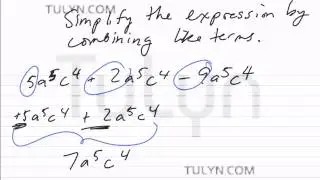 TULYN.COM
Simplify the expression by
combining like terms.
5a⁵c⁴ + 2a⁵c⁴ - 9a⁵c⁴
+5a⁵c⁴ + 2a⁵c⁴
7a⁵c⁴
TuLyn
TULYN.COM